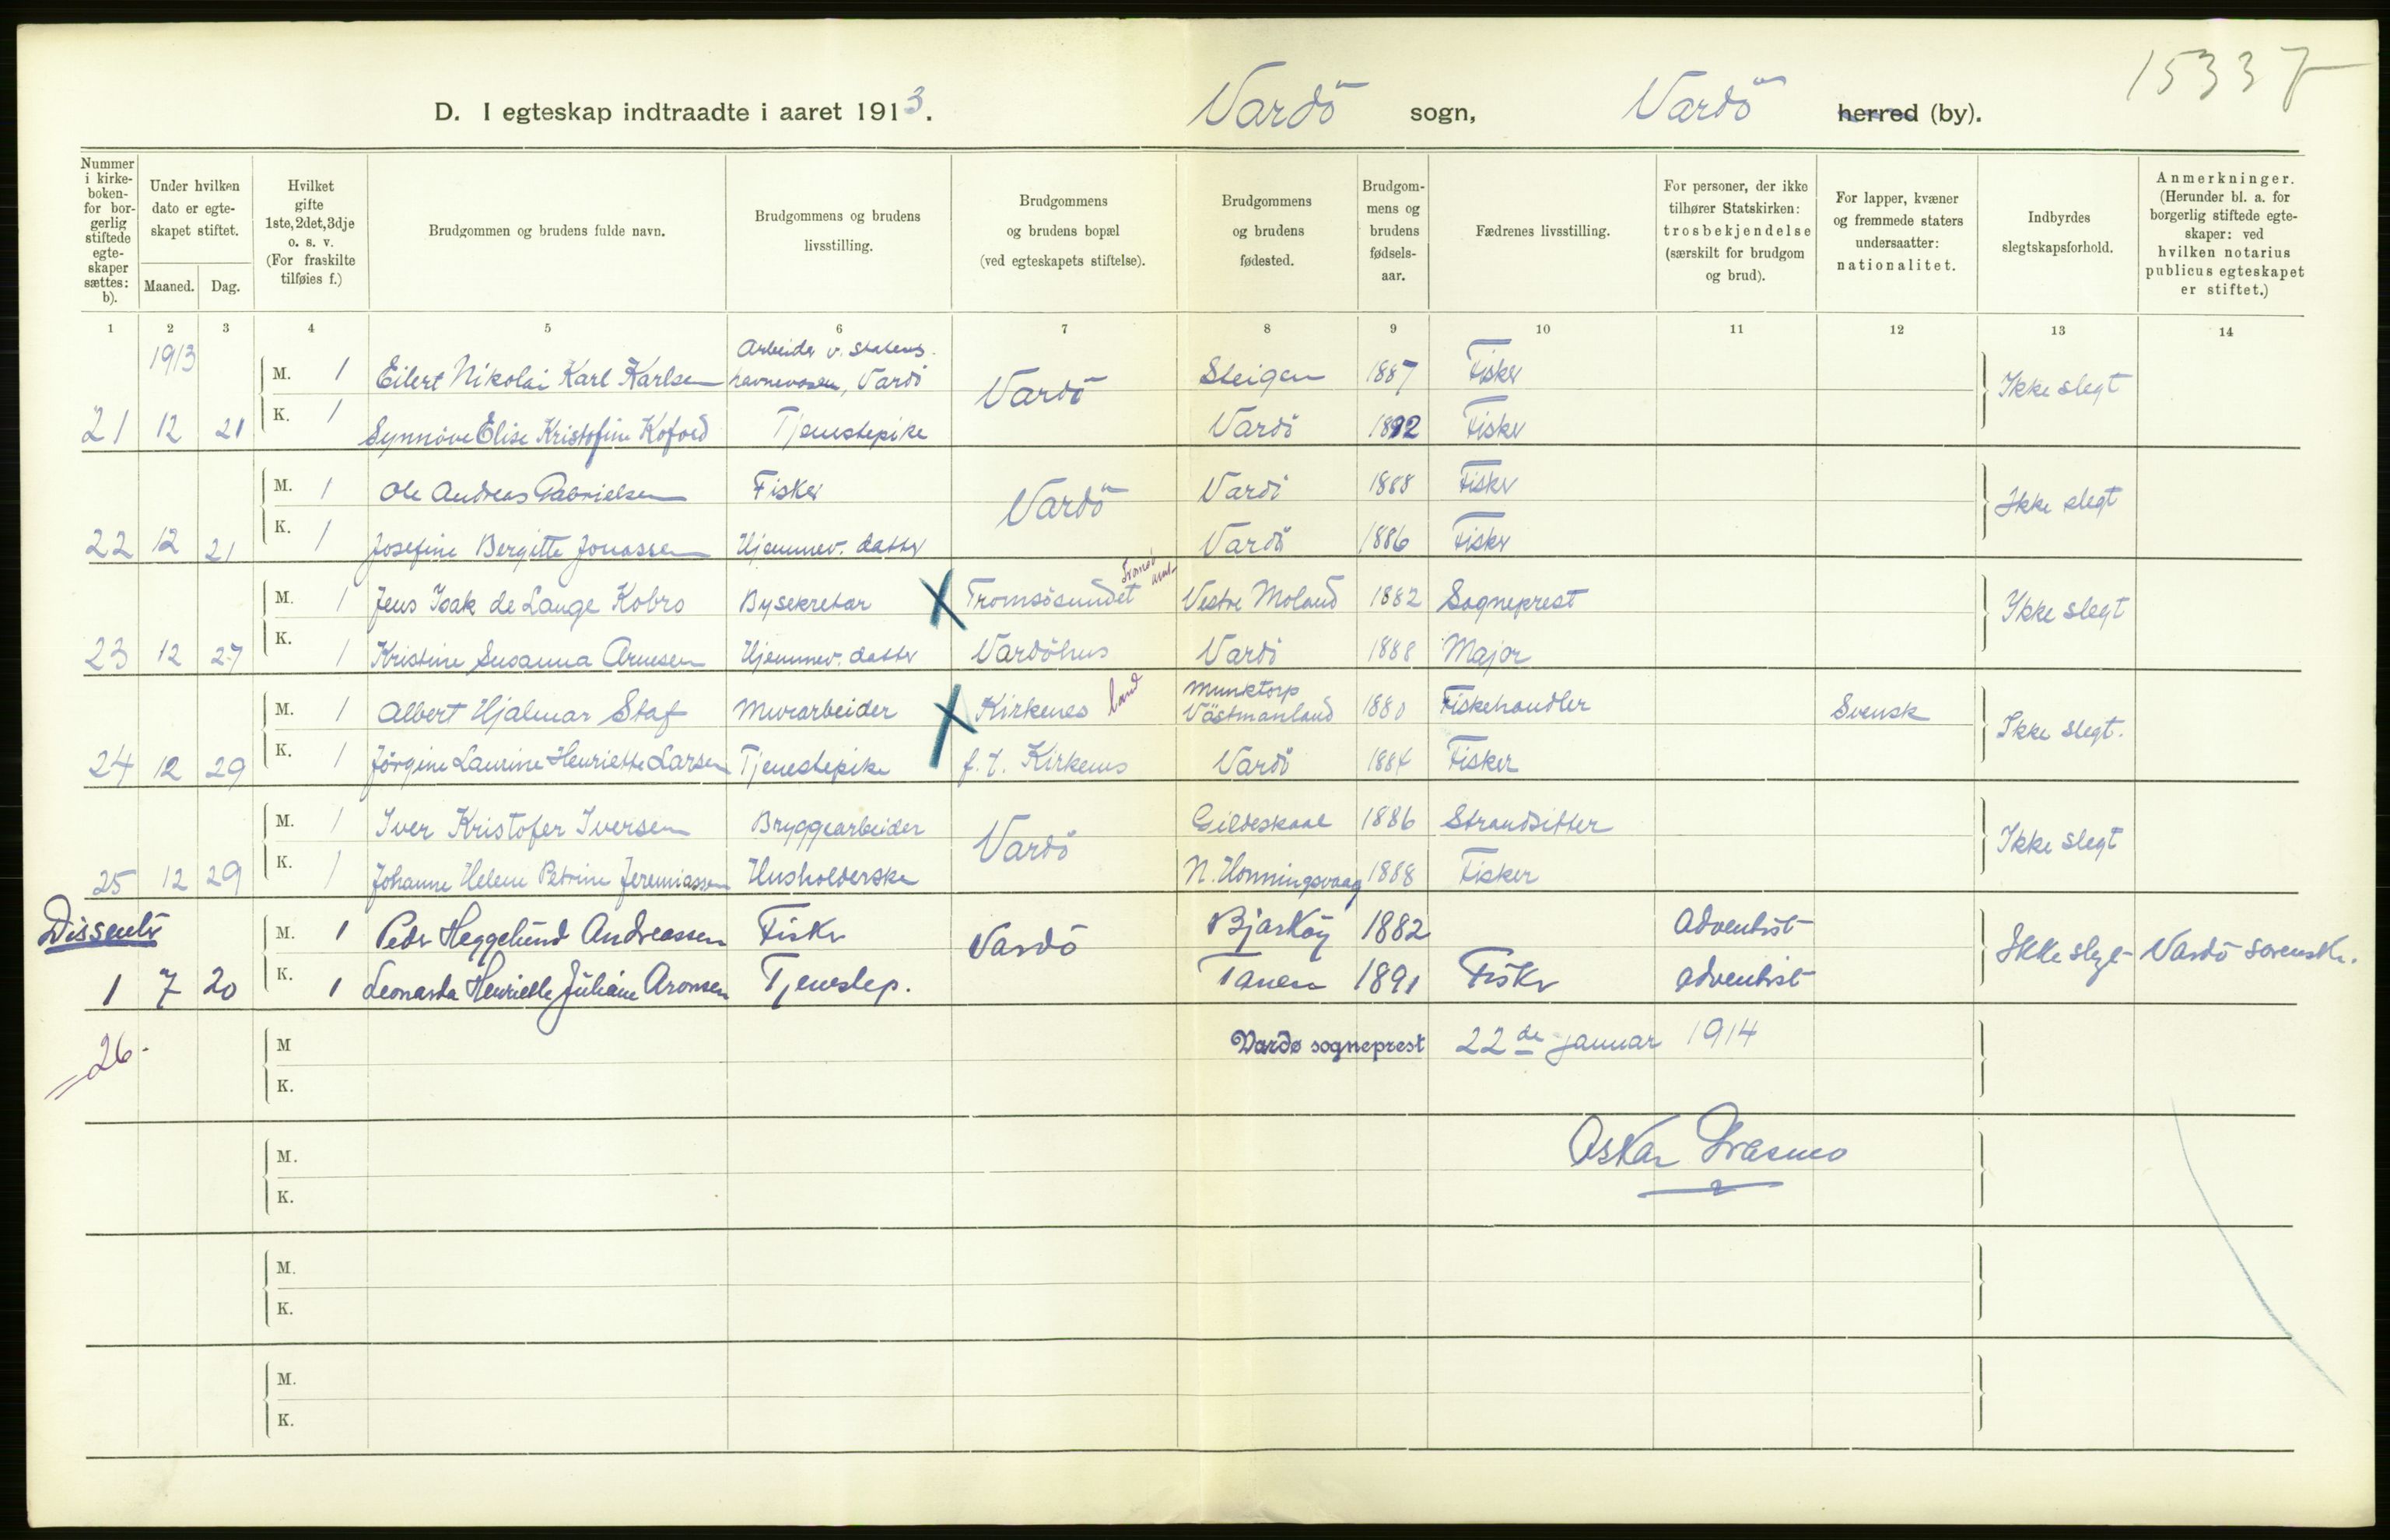 15337
D. I egteskap indtraadte i aaret 1913. Vardö sogn, Vardö herred (by).
Nummer i kirke-boken- for bor-gerlig stiftede egte-skaper sættes: b).
Under hvilken dato er egte-skapet stiftet. Maaned. Dag.
Hvilket gifte 1ste, 2det, 3dje o. s. v. (For fraskilte tilføies f.)
Brudgommen og brudens fulde navn.
Brudgommens og brudens livsstilling.
Brudgommens og brudens bopæl (ved egteskapets stiftelse).
Brudgommens og brudens fødested.
Brudgom-mens og brudens fødsels-aar.
Fædrenes livsstilling.
For personer, der ikke tilhører Statskirken: trosbekjendelse (særskilt for brudgom og brud).
For lapper, kvæner og fremmede staters undersaatter: nationalitet.
Indbyrdes slegtskapsforhold.
Anmerkninger. (Herunder bl. a. for borgerlig stiftede egte-skaper: ved hvilken notarius publicus egteskapet er stiftet.)
1 2 3 4 5 6 7 8 9 10 11 12 13 14
1913 M. 1 Eilert Nikolai Karl Karlsen Arbeider v. Statens havnevæsen, Vardö Vardö Steigen 1887 Fisker Ikke slegt
21 12 21 K. 1 Synnöve Elise Kristofine Kofoed Tjenestepike Vardö 1892 Fisker
M. 1 Ole Andreas Gabrielsen Fisker Vardö Vardö 1888 Fisker Ikke slegt
22 12 21 K. 1 Josefine Bergitte Jonassen Hjemmev. datter Vardö 1886 Fisker
M. 1 Jens Isak de Lange Kobro Bysekretær Tromsösundet Tromsö amt Vestre Moland 1882 Sogneprest Ikke slegt
23 12 27 K. 1 Kristine Susanna Arnesen Hjemmev. datter Vardöhus Vardö 1888 Major
M. 1 Albert Hjalmar Staf Murarbeider Kirkenes land Munktorp Västmanland 1880 Fiskehandler Svensk Ikke slegt.
24 12 29 K. 1 Jörgine Laurine Henriette Larsen Tjenestepike f. t. Kirkenes Vardö 1884 Fisker
M. 1 Iver Kristofer Iversen Bryggearbeider Vardö Gildeskaal 1886 Strandsitter Ikke slegt
25 12 29 K. 1 Johanne Helene Petrine Jeremiassen Husholderske N. Honningsvaag 1888 Fisker
Dissenter M. 1 Peder Heggelund Andreassen Fisker Vardö Bjarköy 1882 Adventist Ikke slegt Vardö sorenskr.
1 7 20 K. 1 Leonarda Henriette Juliane Aronsen Tjenestep. Tanen 1891 Fisker adventist
26. M Vardø sogneprest 22de januar 1914
K.
M. Oskar
K.
M.
K.
M.
K.